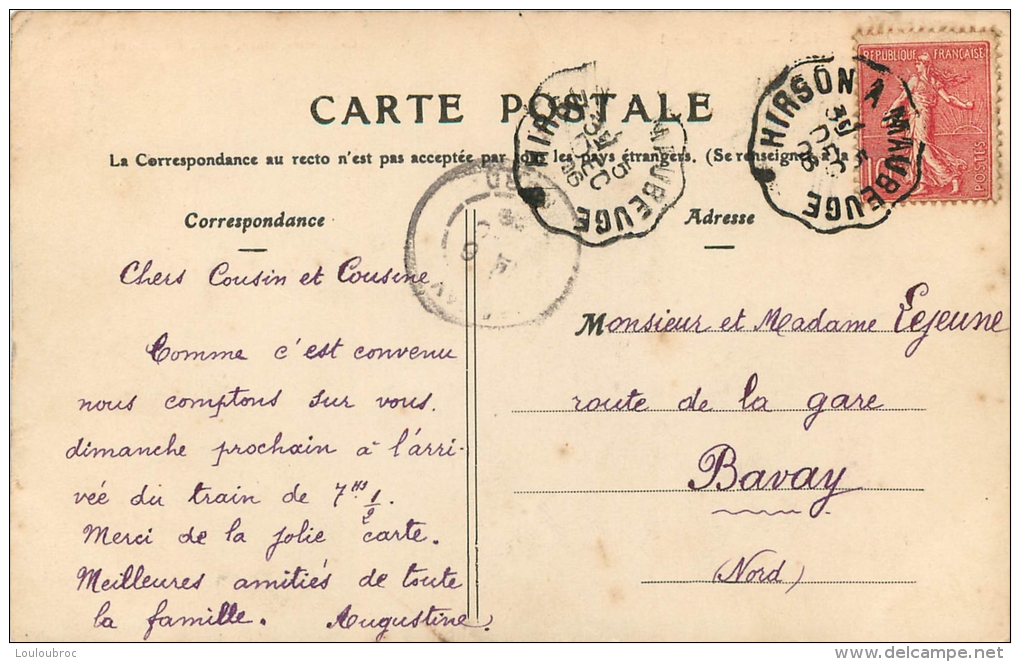 RÉPUBLIQUE FRANÇAISE
10
POSTES
HIRSON A MAUBEUGE
5
DEC
06
HIRSON A MAUBEUGE
5
DEC
06
CARTE POSTALE
La Correspondance au recto n'est pas acceptée par tous les pays étrangers. (Se renseigner à la
Correspondance
Adresse
Chers Cousin et Cousine
Comme c'est convenu
nous comptons sur vous.
dimanche prochain à l'arri-
vée du train de 7 hs 1/2.
Merci de la jolie carte.
Meilleures amitiés de toute
la famille. Augustine.
Monsieur et Madame Lejeune
route de la gare
Bavay
(Nord)
Louloubroc
delcampe.net